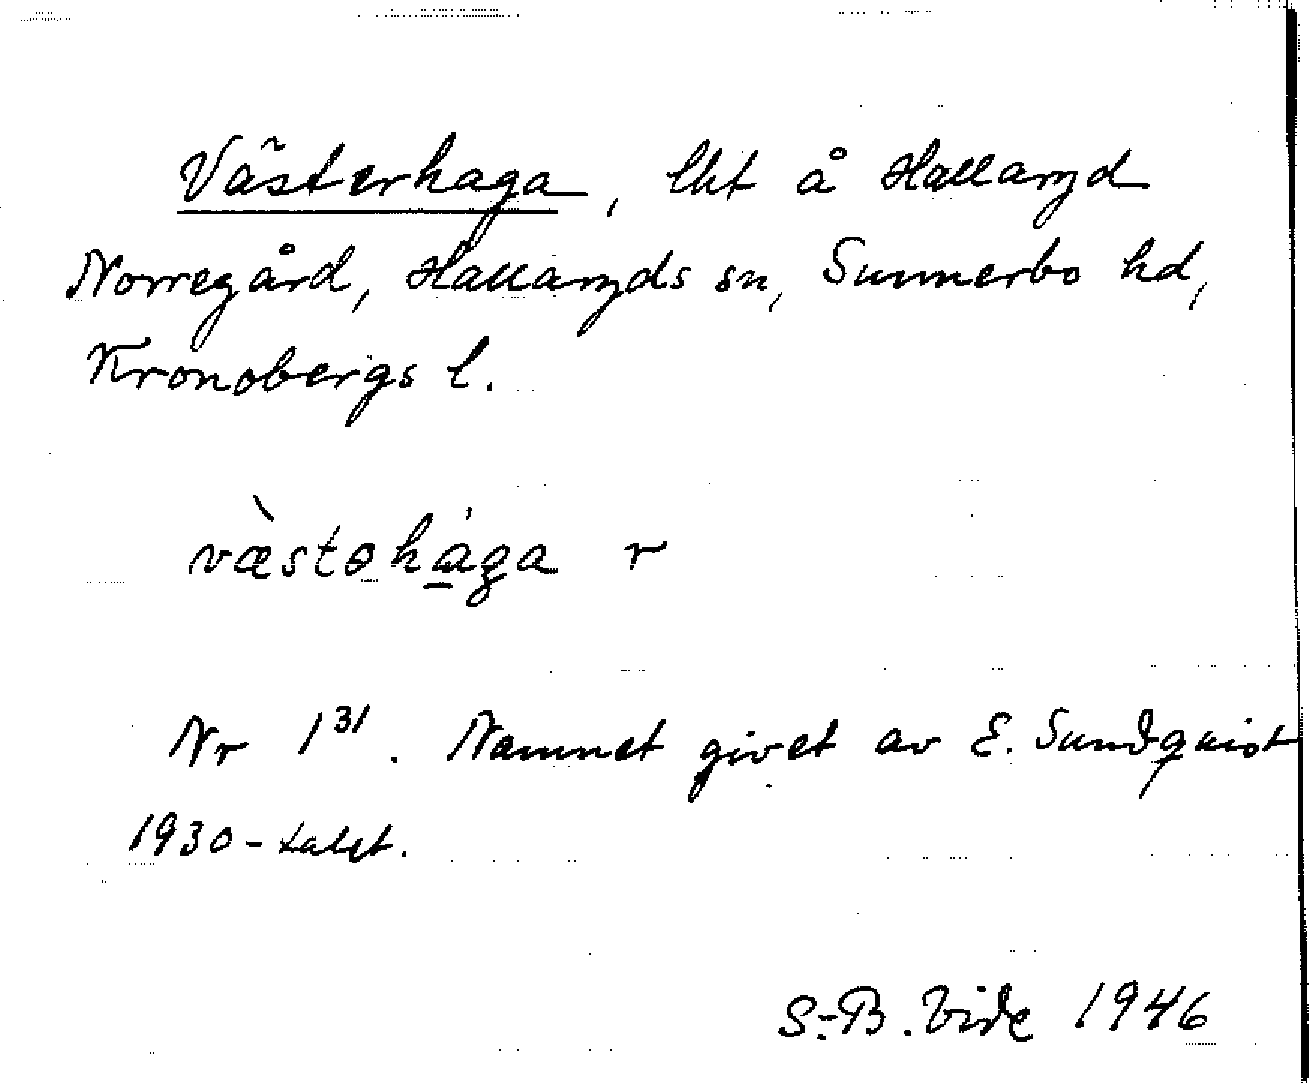 Västerhaga, lht å Hallaryd
Norregård, Hallaryds sn, Sunnerbo hd,
Kronobergs l.
væ̀stəhága r
Nr 1³¹. Namnet givet av E. Sundquist
1930-talet.
S.-B. Vide 1946